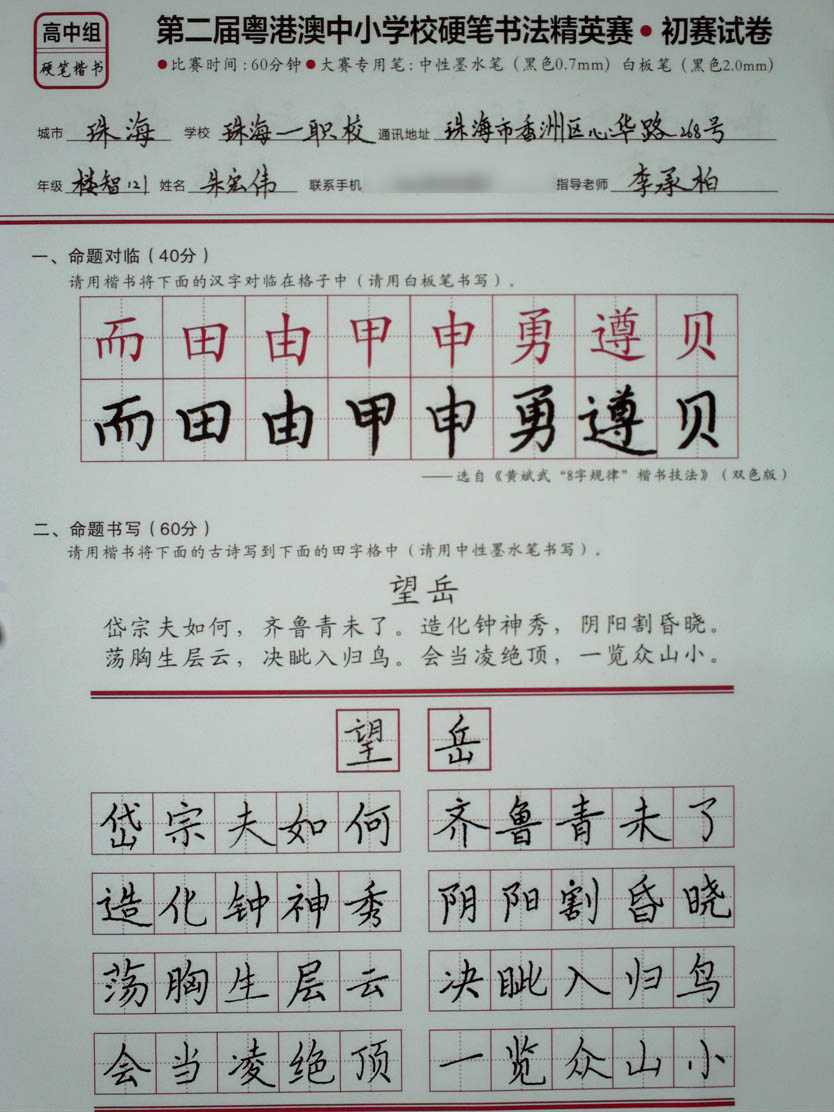 高中组
硬笔楷书
第二届粤港澳中小学校硬笔书法精英赛•初赛试卷
●比赛时间:60分钟●大赛专用笔:中性墨水笔（黑色0.7mm）白板笔（黑色2.0mm）
城市 珠海 学校 珠海一职校 通讯地址 珠海市香洲区心华路268号
年级 楼智121 姓名 朱宏伟 联系手机 指导老师 李承柏
一、命题对临（40分）
请用楷书将下面的汉字对临在格子中（请用白板笔书写）。
而田由甲申勇遵贝
而田由甲申勇遵贝
——选自《黄斌武“8字规律”楷书技法》（双色版）
二、命题书写（60分）
请用楷书将下面的古诗写到下面的田字格中（请用中性墨水笔书写）。
望岳
岱宗夫如何，齐鲁青未了。造化钟神秀，阴阳割昏晓。
荡胸生层云，决眦入归鸟。会当凌绝顶，一览众山小。
望岳
岱宗夫如何 齐鲁青未了
造化钟神秀 阴阳割昏晓
荡胸生层云 决眦入归鸟
会当凌绝顶 一览众山小